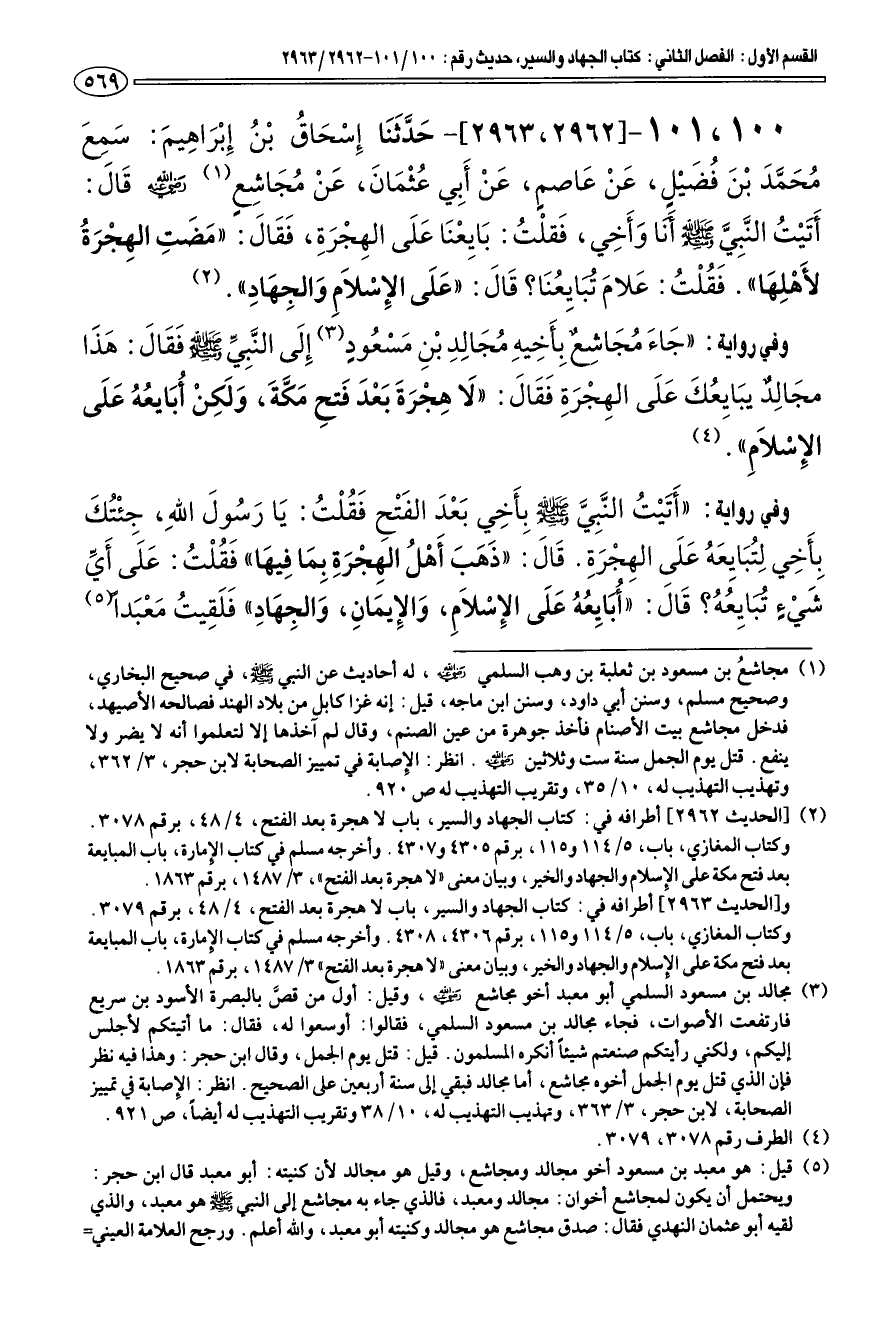 القسم الأول: الفصل الثاني: كتاب الجهاد والسير، حديث رقم: ١٠٠/ ١٠١-٢٩٦٢/ ٢٩٦٣
٥٦٩
١٠٠، ١٠١-[٢٩٦٢، ٢٩٦٣]- حَدَّثَنَا إِسْحَاقُ بْنُ إِبْرَاهِيمَ: سَمِعَ
مُحَمَّدَ بْنَ فُضَيْلٍ، عَنْ عَاصِمٍ، عَنْ أَبِي عُثْمَانَ، عَنْ مُجَاشِعٍ(١) رضي الله عنه قَالَ:
أَتَيْتُ النَّبِيَّ ﷺ أَنَا وَأَخِي، فَقلْتُ: بَايِعْنَا عَلَى الهِجْرَةِ، فَقَالَ: «مَضَتِ الهِجْرَةُ
لأَهْلِهَا». فَقُلْتُ: عَلامَ تُبَايِعُنَا؟ قَالَ: «عَلَى الإِسْلَامِ وَالجِهَادِ». (٢)
وفي رواية: «جَاءَ مُجَاشِعٌ بِأَخِيهِ مُجَالِدِ بْنِ مَسْعُودٍ(٣) إِلَى النَّبِيِّ ﷺ فَقَالَ: هَذَا
مجَالِدٌ يبَايِعُكَ عَلَى الهِجْرَةِ فَقَالَ: «لَا هِجْرَةَ بَعْدَ فَتحِ مَكَّةَ، وَلَكِنْ أُبَايعُهُ عَلَى
الإِسْلَامِ». (٤)
وفي رواية: «أَتَيْتُ النَّبِيَّ ﷺ بِأَخِي بَعْدَ الفَتْحِ فَقُلْتُ: يَا رَسُولَ اللهِ، جِئْتُكَ
بِأَخِي لِتُبَايِعَهُ عَلَى الهِجْرَةِ. قَالَ: «ذَهَبَ أَهْلُ الهِجْرَةِ بِمَا فِيهَا» فَقُلْتُ: عَلَى أَيِّ
شَيْءٍ تُبَايِعُهُ؟ قَالَ: «أُبَايِعُهُ عَلَى الإِسْلَامِ، وَالإِيمَانِ، وَالجِهَادِ» فَلَقِيتُ مَعْبَداً(٥)
(١) مجاشعُ بن مسعود بن ثعلبة بن وهب السلمي رضي الله عنه، له أحاديث عن النبي ﷺ، في صحيح البخاري،
وصحيح مسلم، وسنن أبي داود، وسنن ابن ماجه، قيل: إنه غزا كابل من بلاد الهند فصالحه الأصيهد،
فدخل مجاشع بيت الأصنام فأخذ جوهرة من عين الصنم، وقال لم آخذها إلا لتعلموا أنه لا يضر ولا
ينفع. قتل يوم الجمل سنة ست وثلاثين رضي الله عنه. انظر: الإصابة في تمييز الصحابة لابن حجر، ٣/ ٣٦٢،
وتهذيب التهذيب له، ١٠/ ٣٥، وتقريب التهذيب له ص ٩٢٠.
(٢) [الحديث ٢٩٦٢] أطرافه في: كتاب الجهاد والسير، باب لا هجرة بعد الفتح، ٤/ ٤٨، برقم ٣٠٧٨.
وكتاب المغازي، باب، ٥/ ١١٤ و١١٥، برقم ٤٣٠٥ و٤٣٠٧. وأخرجه مسلم في كتاب الإمارة، باب المبايعة
بعد فتح مكة على الإسلام والجهاد والخير، وبيان معنى «لا هجرة بعد الفتح»، ٣/ ١٤٨٧، برقم ١٨٦٣.
و[الحديث ٢٩٦٣] أطرافه في: كتاب الجهاد والسير، باب لا هجرة بعد الفتح، ٤/ ٤٨، برقم ٣٠٧٩.
وكتاب المغازي، باب، ٥/ ١١٤ و١١٥، برقم ٤٣٠٦، ٤٣٠٨. وأخرجه مسلم في كتاب الإمارة، باب المبايعة
بعد فتح مكة على الإسلام والجهاد والخير، وبيان معنى «لا هجرة بعد الفتح» ٣/ ١٤٨٧، برقم ١٨٦٣.
(٣) مجالد بن مسعود السلمي أبو معبد أخو مجاشع رضي الله عنه، وقيل: أول من قصَّ بالبصرة الأسود بن سريع
فارتفعت الأصوات، فجاء مجالد بن مسعود السلمي، فقالوا: أوسعوا له، فقال: ما أتيتكم لأجلس
إليكم، ولكني رأيتكم صنعتم شيئاً أنكره المسلمون. قيل: قتل يوم الجمل، وقال ابن حجر: وهذا فيه نظر
فإن الذي قتل يوم الجمل أخوه مجاشع، أما مجالد فبقي إلى سنة أربعين على الصحيح. انظر: الإصابة في تمييز
الصحابة، لابن حجر، ٣/ ٣٦٣، وتهذيب التهذيب له، ١٠/ ٣٨ وتقريب التهذيب له أيضاً، ص ٩٢١.
(٤) الطرف رقم ٣٠٧٨، ٣٠٧٩.
(٥) قيل: هو معبد بن مسعود أخو مجالد ومجاشع، وقيل هو مجالد لأن كنيته: أبو معبد قال ابن حجر:
ويحتمل أن يكون لمجاشع أخوان: مجالد ومعبد، فالذي جاء به مجاشع إلى النبي ﷺ هو معبد، والذي
لقيه أبو عثمان النهدي فقال: صدق مجاشع هو مجالد وكنيته أبو معبد، والله أعلم. ورجح العلامة العيني=